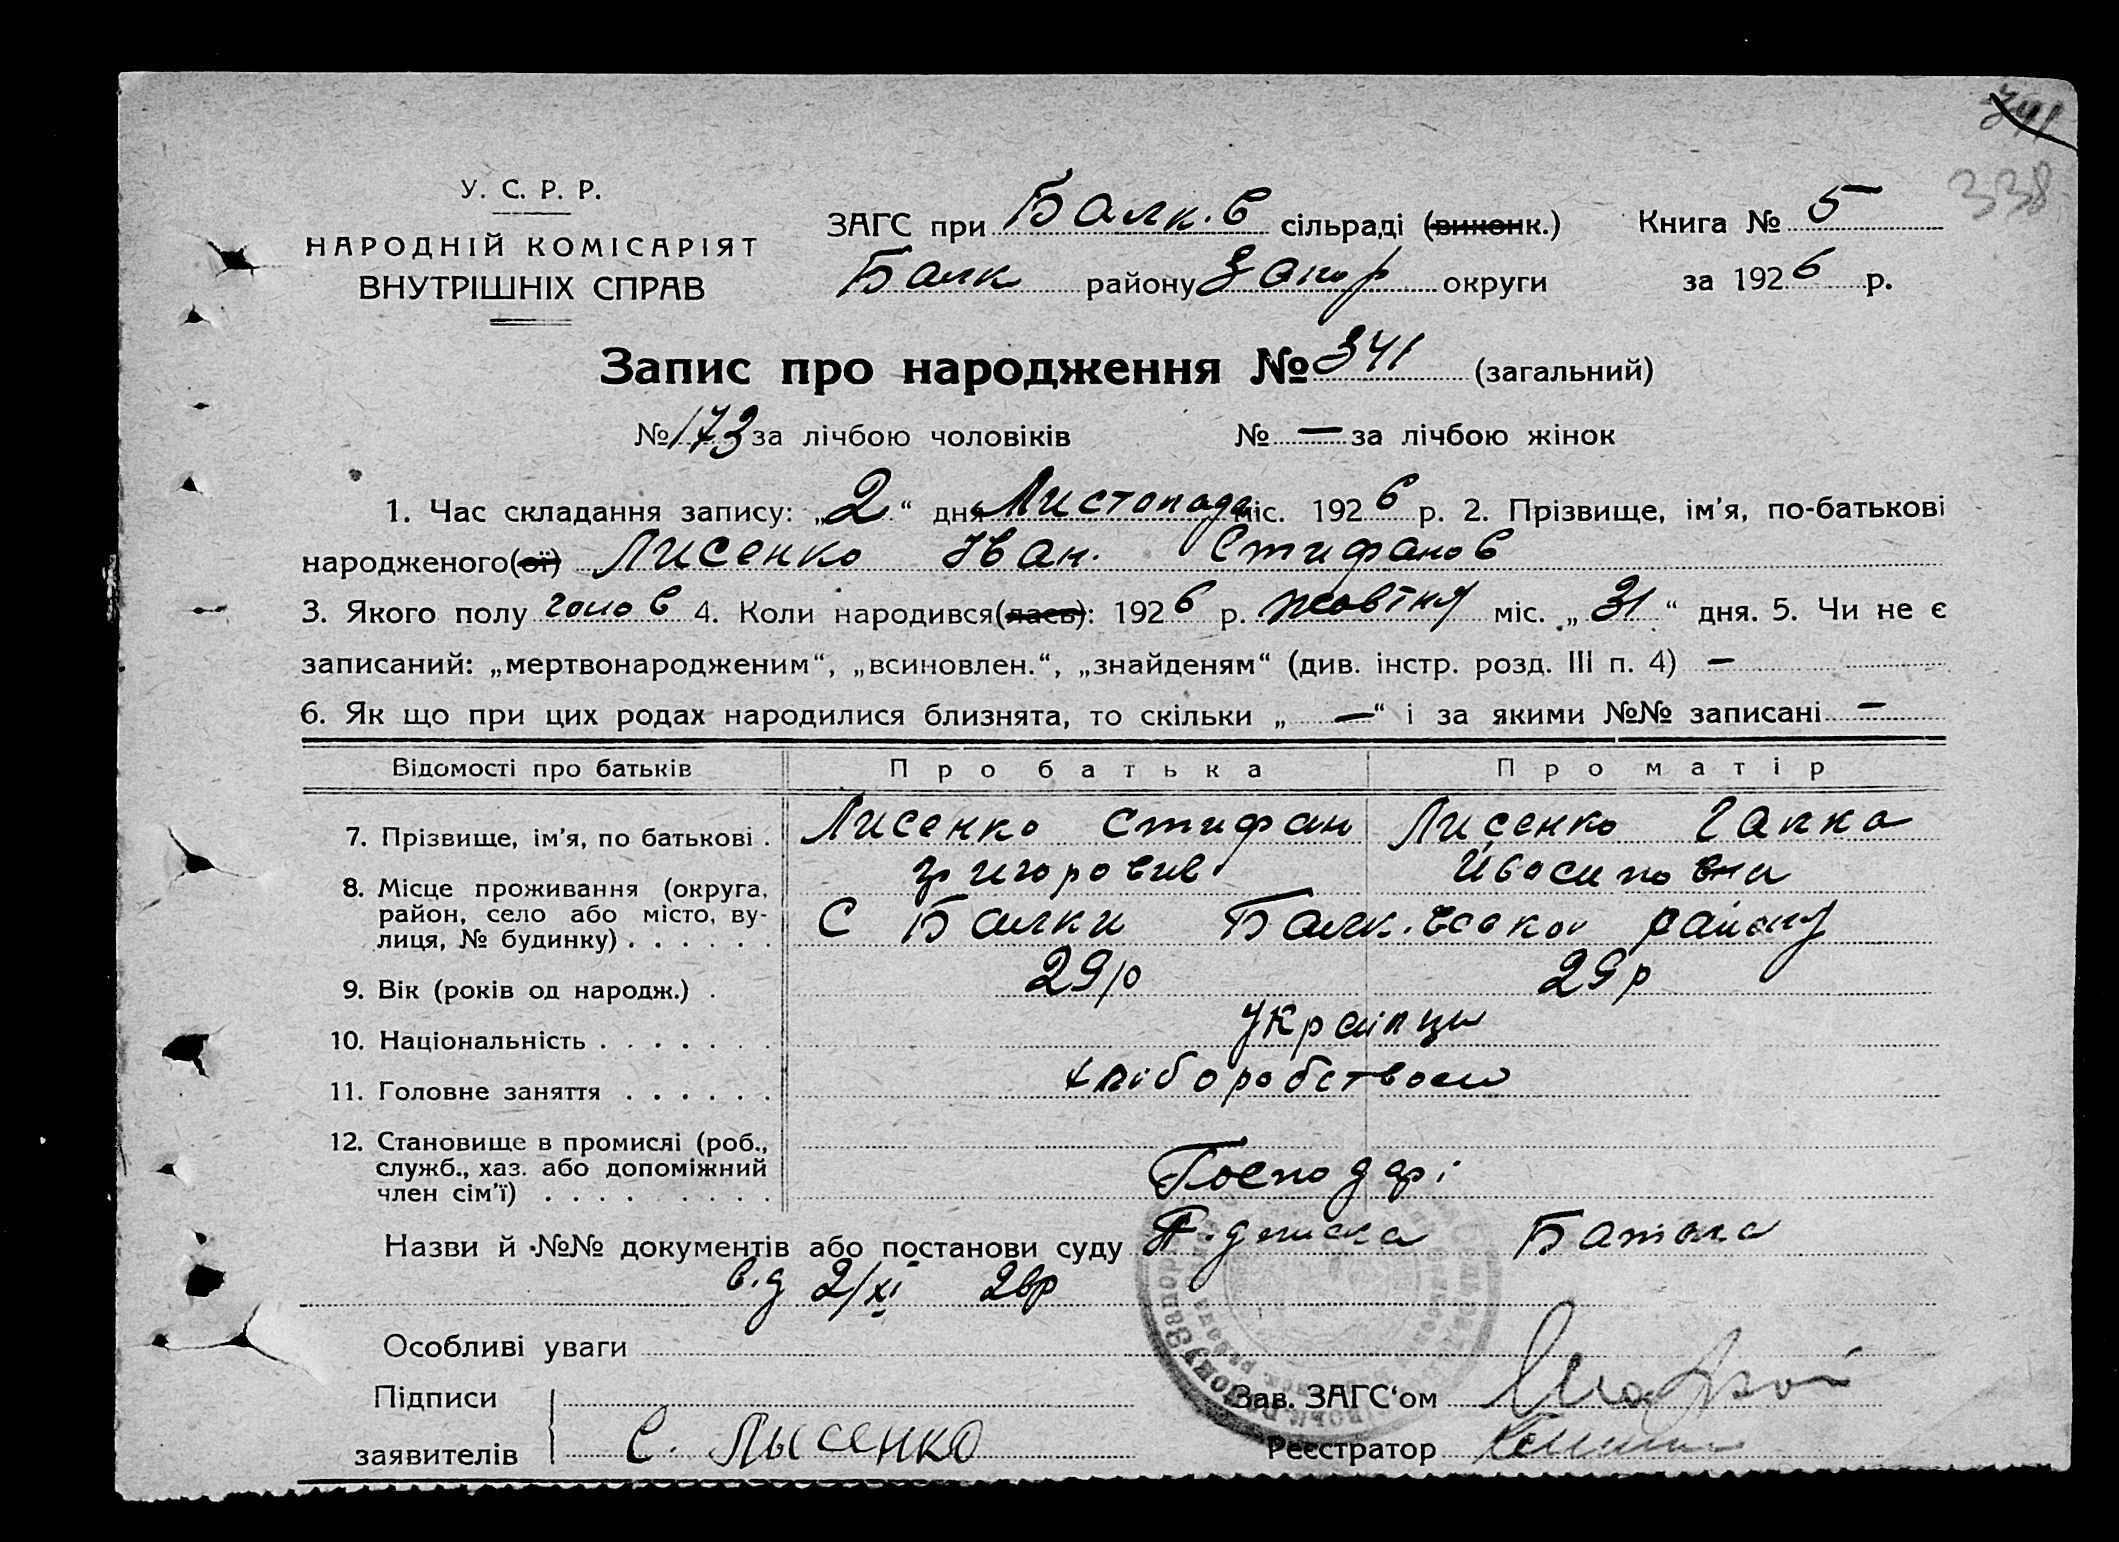 341
338
У. С. Р. Р.
НАРОДНІЙ КОМІСАРІЯТ
ВНУТРІШНІХ СПРАВ
ЗАГС при Балк. в сільраді (виконк.) Книга № 5
Балк району Запор округи за 1926 р.
Запис про народження № 341 (загальний)
№ 173 за лічбою чоловіків № — за лічбою жінок
1. Час складання запису: „2“ дня Листопада міс. 1926 р. 2. Прізвище, ім'я, по-батькові
народженого(ої) Лисенко Іван. Стифанов
3. Якого полу чолов 4. Коли народився(лась): 1926 р. жовтня міс. „31“ дня. 5. Чи не є
записаний: „мертвонародженим“, „всиновлен.“, „знайденям“ (див. інстр. розд. III п. 4) —
6. Як що при цих родах народилися близнята, то скільки „—“ і за якими №№ записані —
Відомості про батьків Про батька Про матір
7. Прізвище, ім'я, по батькові . Лисенко Стифан Лисенко Ганна
8. Місце проживання (округа, район, село або місто, вулиця, № будинку) . . . . . . С Балки Балк. району
9. Вік (років од народж.) . 29 р 29 р
10. Національність . . . . . . . Українци
11. Головне заняття . . . . . . хліборобством
12. Становище в промислі (роб., служб., хаз. або допоміжний член сім'ї) . . . . . . . . Господарі
Назви й №№ документів або постанови суду П.дписка Батька
в.д 2/XI 26р
Особливі уваги
Підписи Зав. ЗАГС'ом
заявителів С. Лысенко Реєстратор